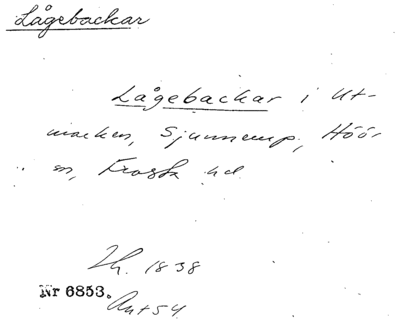 Lågebackar
Lågebackar i Ut-
marken, Sjunnerup, Höör
sn, Frosta hd
Lh. 1838
Nr 6853.
Ant 54